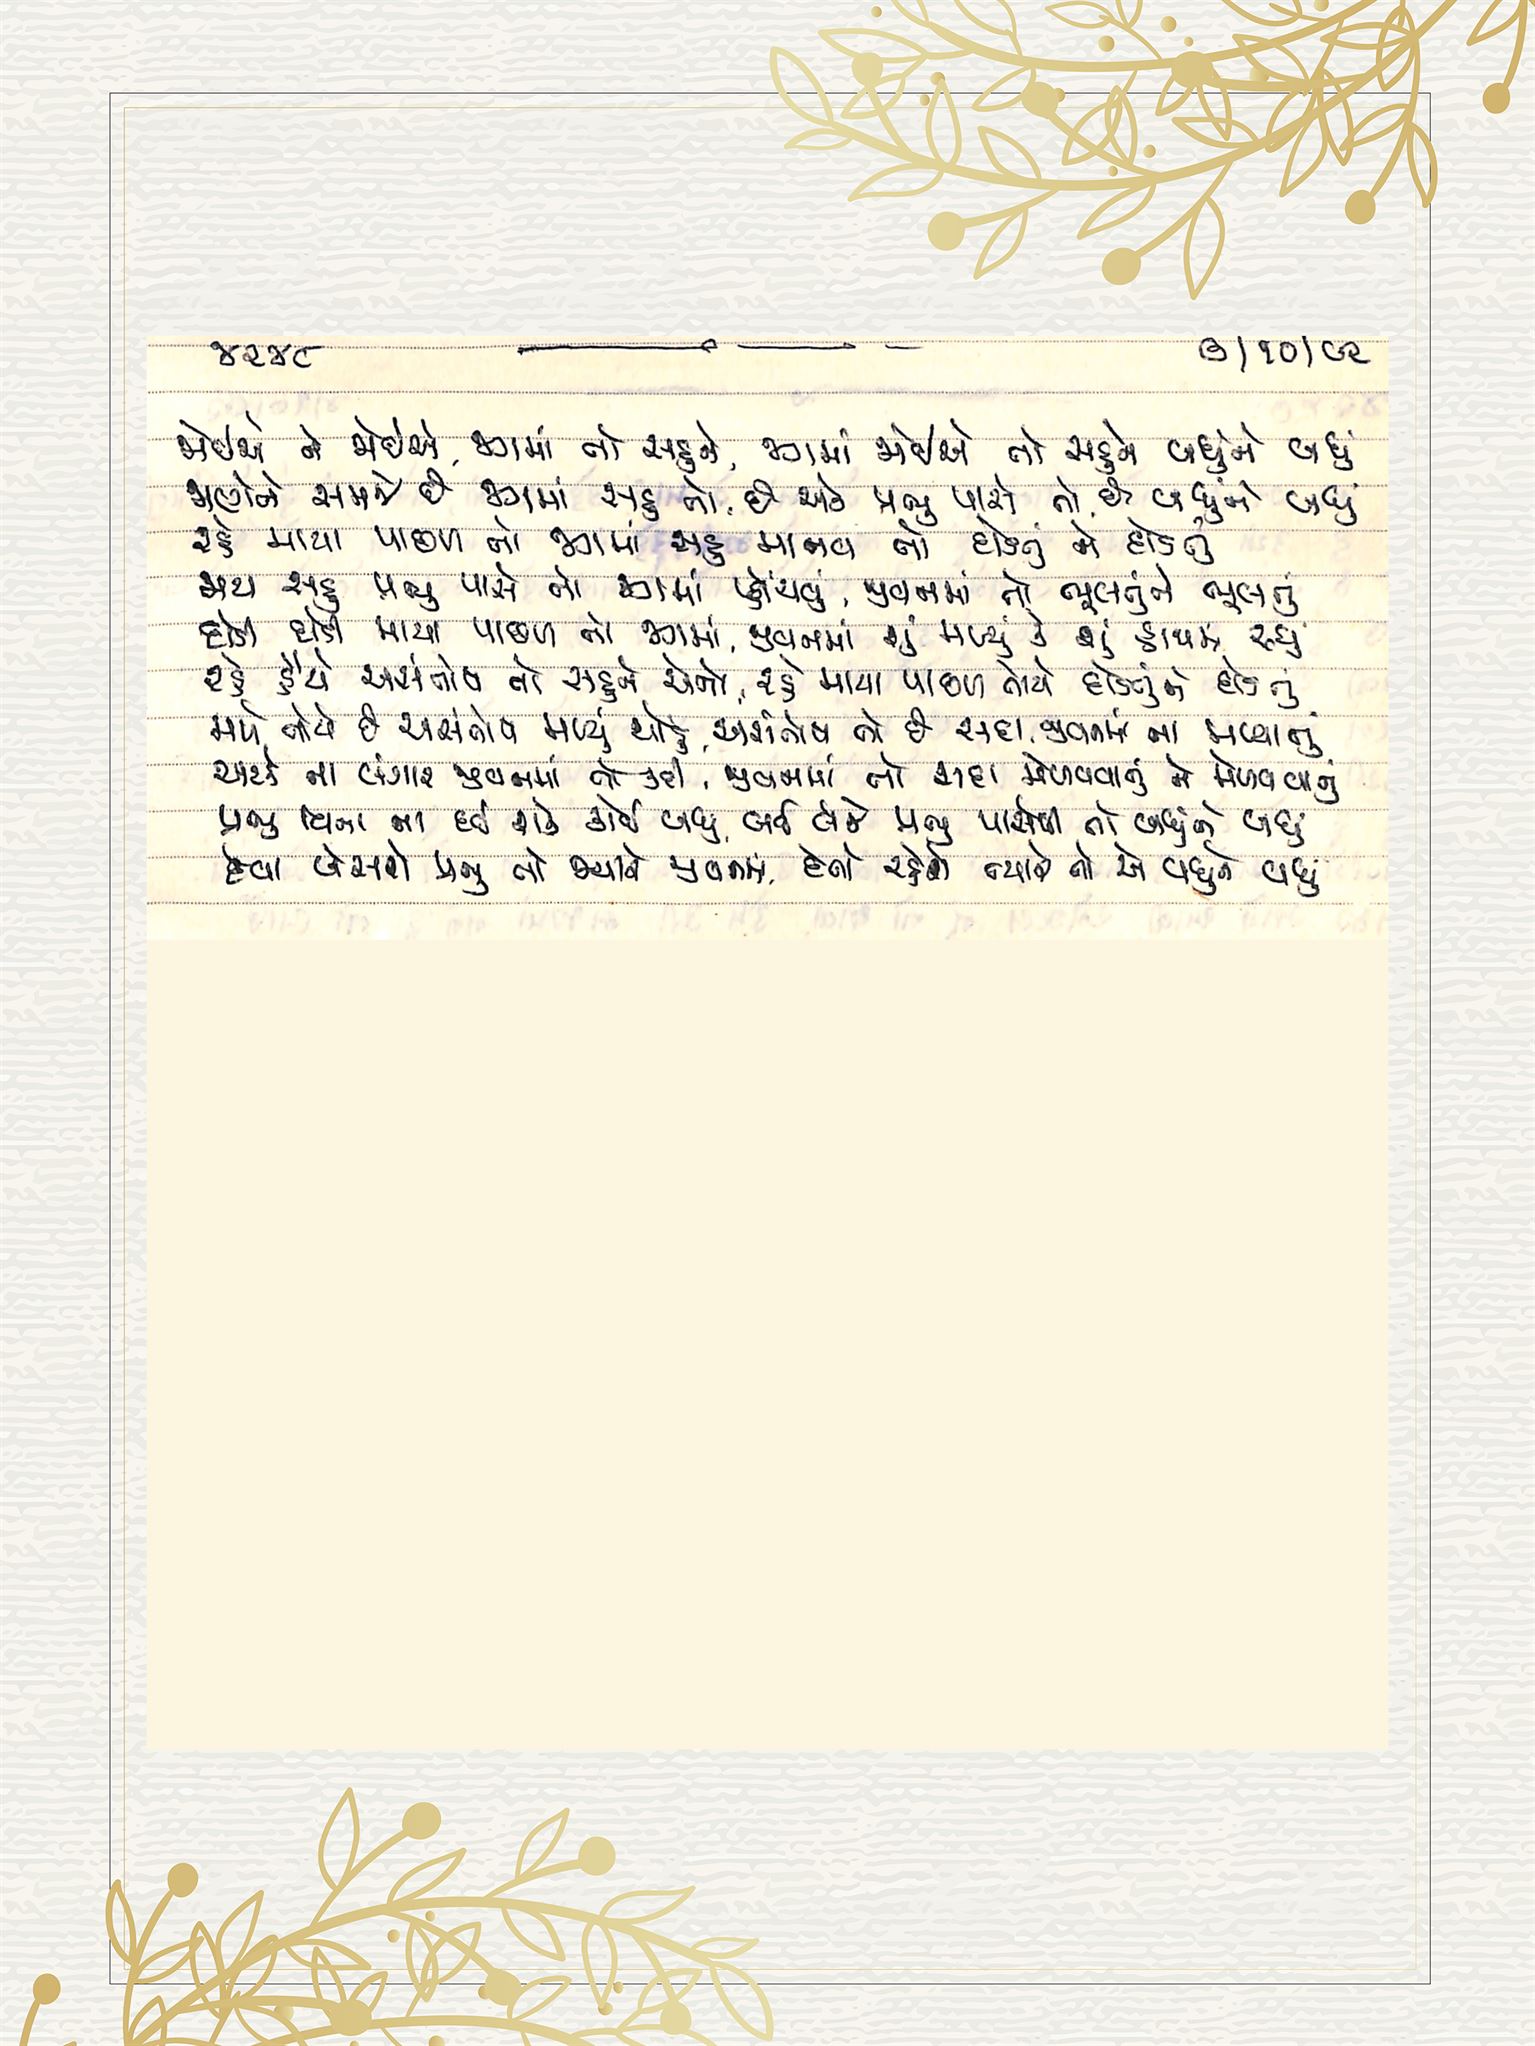 ૪૨૪૮ ૭/૧૦/૯૨
જોઈએ ને જોઈએ, જગમાં તો સહુને, જગમાં જોઈએ તો સહુને બધુંને બધું
જાણેને સમજે છે જગમાં સહુ તો, છે એક પ્રભુ પાસે તો, છે બધુંને બધું
રહે માયા પાછળ તો જગમાં સહુ માનવ તો દોડતું ને દોડતું
જાય સહુ પ્રભુ પાસે તો જગમાં પ્હોંચવું, જીવનમાં તો ભૂલતુંને ભૂલતું
દોડી દોડી માયા પાછળ તો જગમાં, જીવનમાં શું મળ્યું કે શું હાથમાં રહ્યું
રહે હૈયે અસંતોષ તો સહુને એનો, રહે માયા પાછળ તોયે દોડતુંને દોડતું
મળે તોયે છે અસંતોષ મળ્યું થોડું, અસંતોષ તો છે સદા, જીવનમાં ના મળ્યાનું
અટકે ના વણઝાર જીવનમાં તો કદી, જીવનમાં તો સદા મેળવવાનું ને મેળવવાનું
પ્રભુ વિના ના દઈ શકે કોઈ બધું, બઈ પ્રભુ પાસેથી તો બધુંને બધું
દેવા બેસશે પ્રભુ તો જ્યારે જીવનમાં, દેતો રહેશે ત્યારે તો એ બધુંને બધું